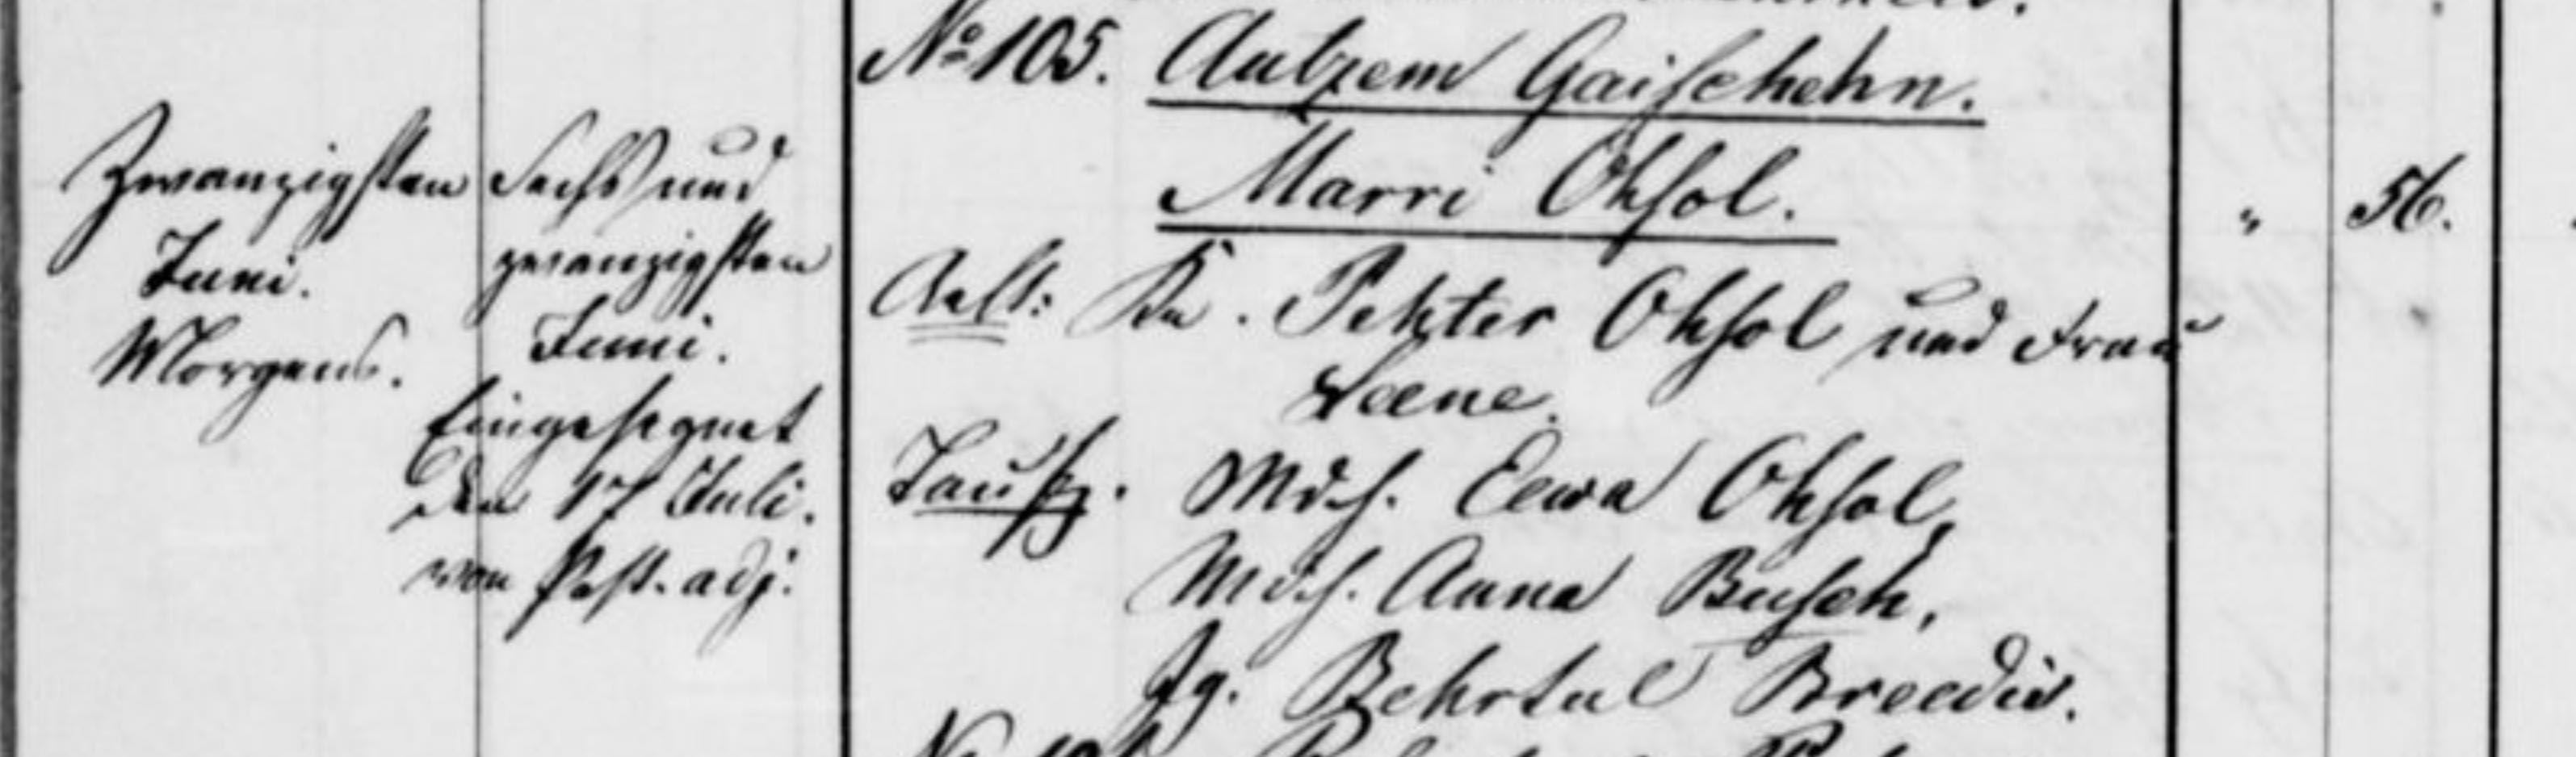 Zwanzigsten
Juni.
Morgens.
Sechs und
zwanzigsten
Juni.
Eingesegnet
den 17 Juli.
von Past. adj.
№ 105. Autzem Gaischehn.
Marri Ohsol.
Aelt: Kn. Pehter Ohsol und Frau
Leene.
Taufz. Mdch. Eewa Ohsol,
Mdch. Anna Busch,
Jg. Behrtul Breedis.
" 56.